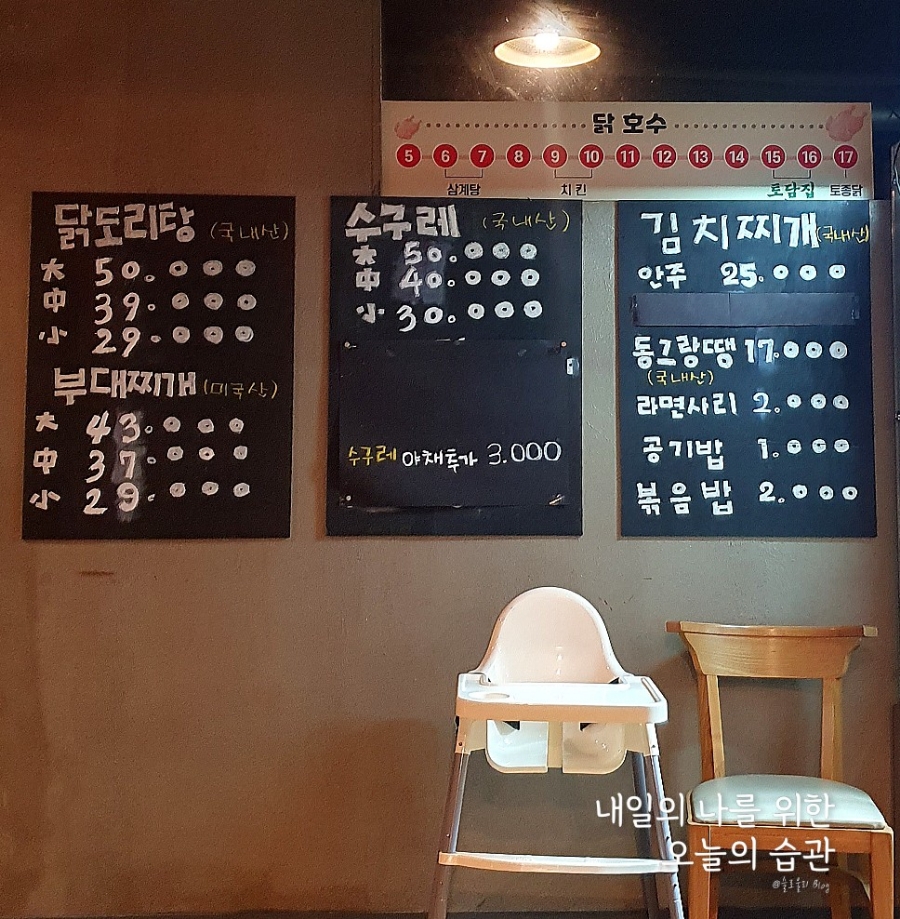 닭 호수
5 6 7 8 9 10 11 12 13 14 15 16 17
삼계탕 치킨 토담집 토종닭
닭도리탕 (국내산)
大 50.000
中 39.000
小 29.000
부대찌개 (미국산)
大 43.000
中 37.000
小 29.000
수구레 (국내산)
大 50.000
中 40.000
小 30.000
수구레 야채추가 3.000
김치찌개 (국내산)
안주 25.000
동그랑땡 17.000
(국내산)
라면사리 2.000
공기밥 1.000
볶음밥 2.000
내일의 나를 위한
오늘의 습관